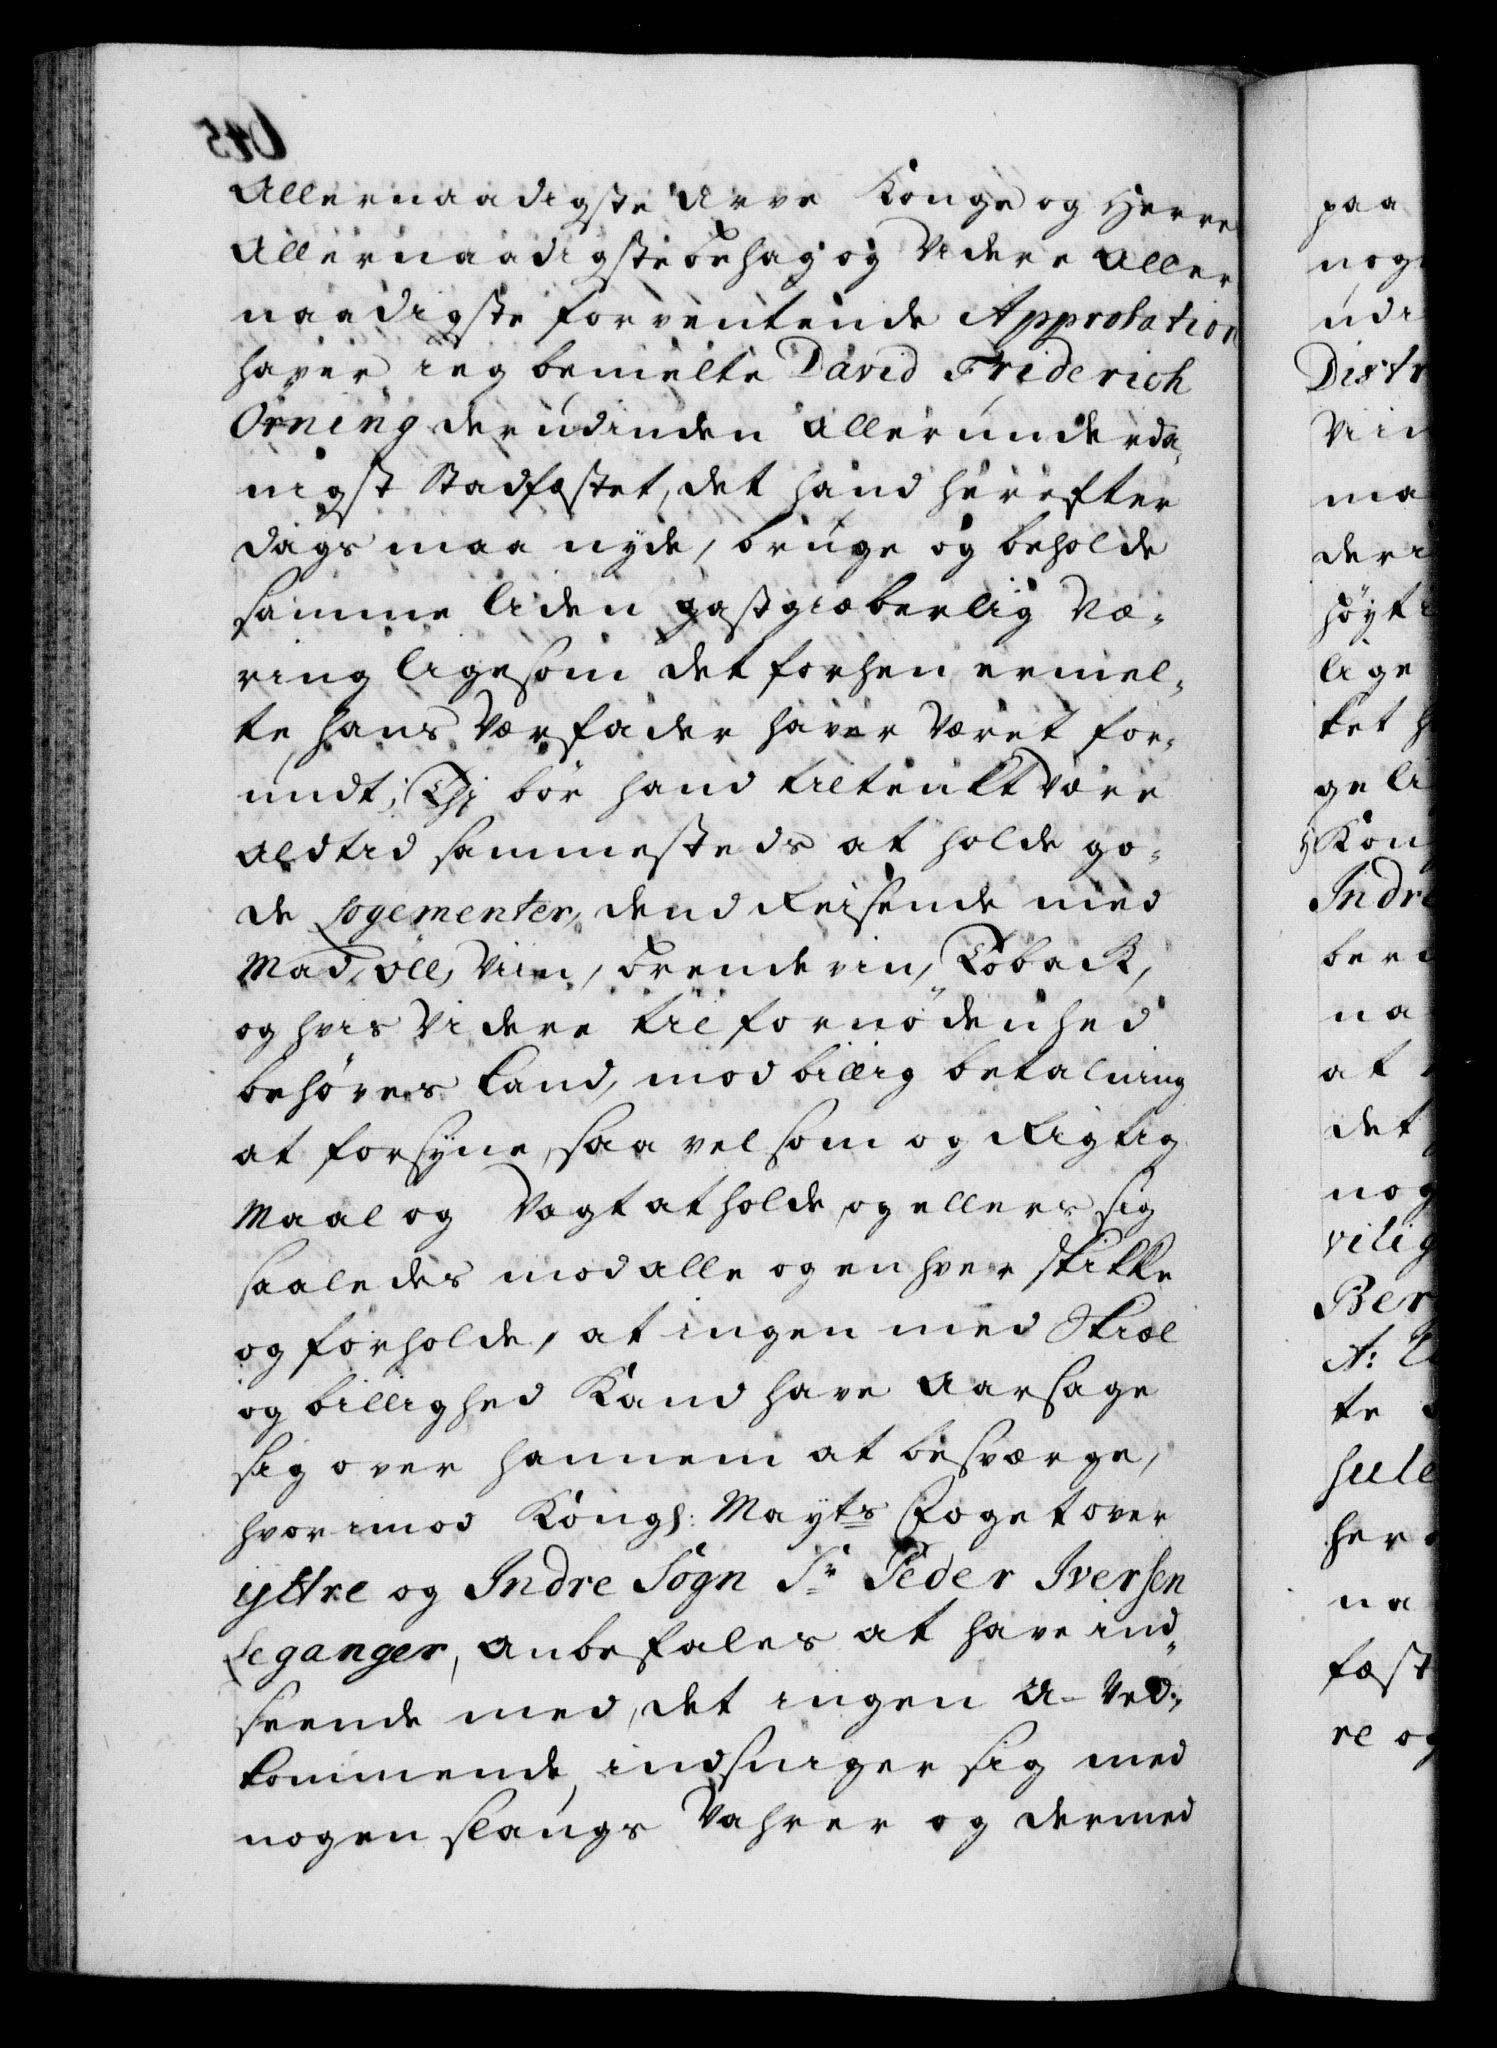 Allernaadigste Arve Konge og Herre
Allernaadigste behag og Videre Aller
naadigste forventende Approbation
haver ieg bemelte David Friderich
Örning derudinden Allerunderda-
nigst Stadfæstet, det hand herefter
dags maa nyde, bruge og beholde
samme liden gastgiæberlig Næ-
ring ligesom det forhen ermel-
te hans Værfader haver Været for-
undt; Thj bör hand tiltenkt Være
Aldtid sammesteds at holde go-
de Logementer, dend Reisende med
Mad, öll, Viin, brendevin, Toback,
og hvis Videre til fornödenhed
behöves kand, mod billig betalning
at forsÿne, saa vel som og Rigtig
Maal og Vægt at holde, og ellers sig
saaledes mod alle og enhver skikke
og forholde, at ingen med Skiæl
og billighed Kand have Aarsage
sig over hannem at besværge,
hvorimod Kongl: Mayts Foget over
ÿttre og Indre Sogn Sr Peder Iversen
Leganger, anbefales at have ind-
seende med, det ingen U-Ved-
kommende indsniger sig med
nogen slaugs Vahrer og dermed
paa
nog
udi
Distr
Vii
ma
deri
höÿt
lige
ket
ge li
Kon
Indre
ber
na
at
det
nog
vilig
Ber
A:
te
hule
her
na
fæst
re og